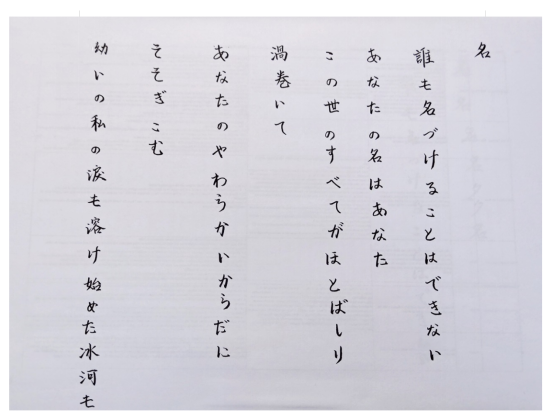 名
誰も名づけることはできない
あなたの名はあなた
この世のすべてがほとばしり
渦巻いて
あなたのやわらかいからだに
そそぎこむ
幼いの私の涙も溶け始めた氷河も